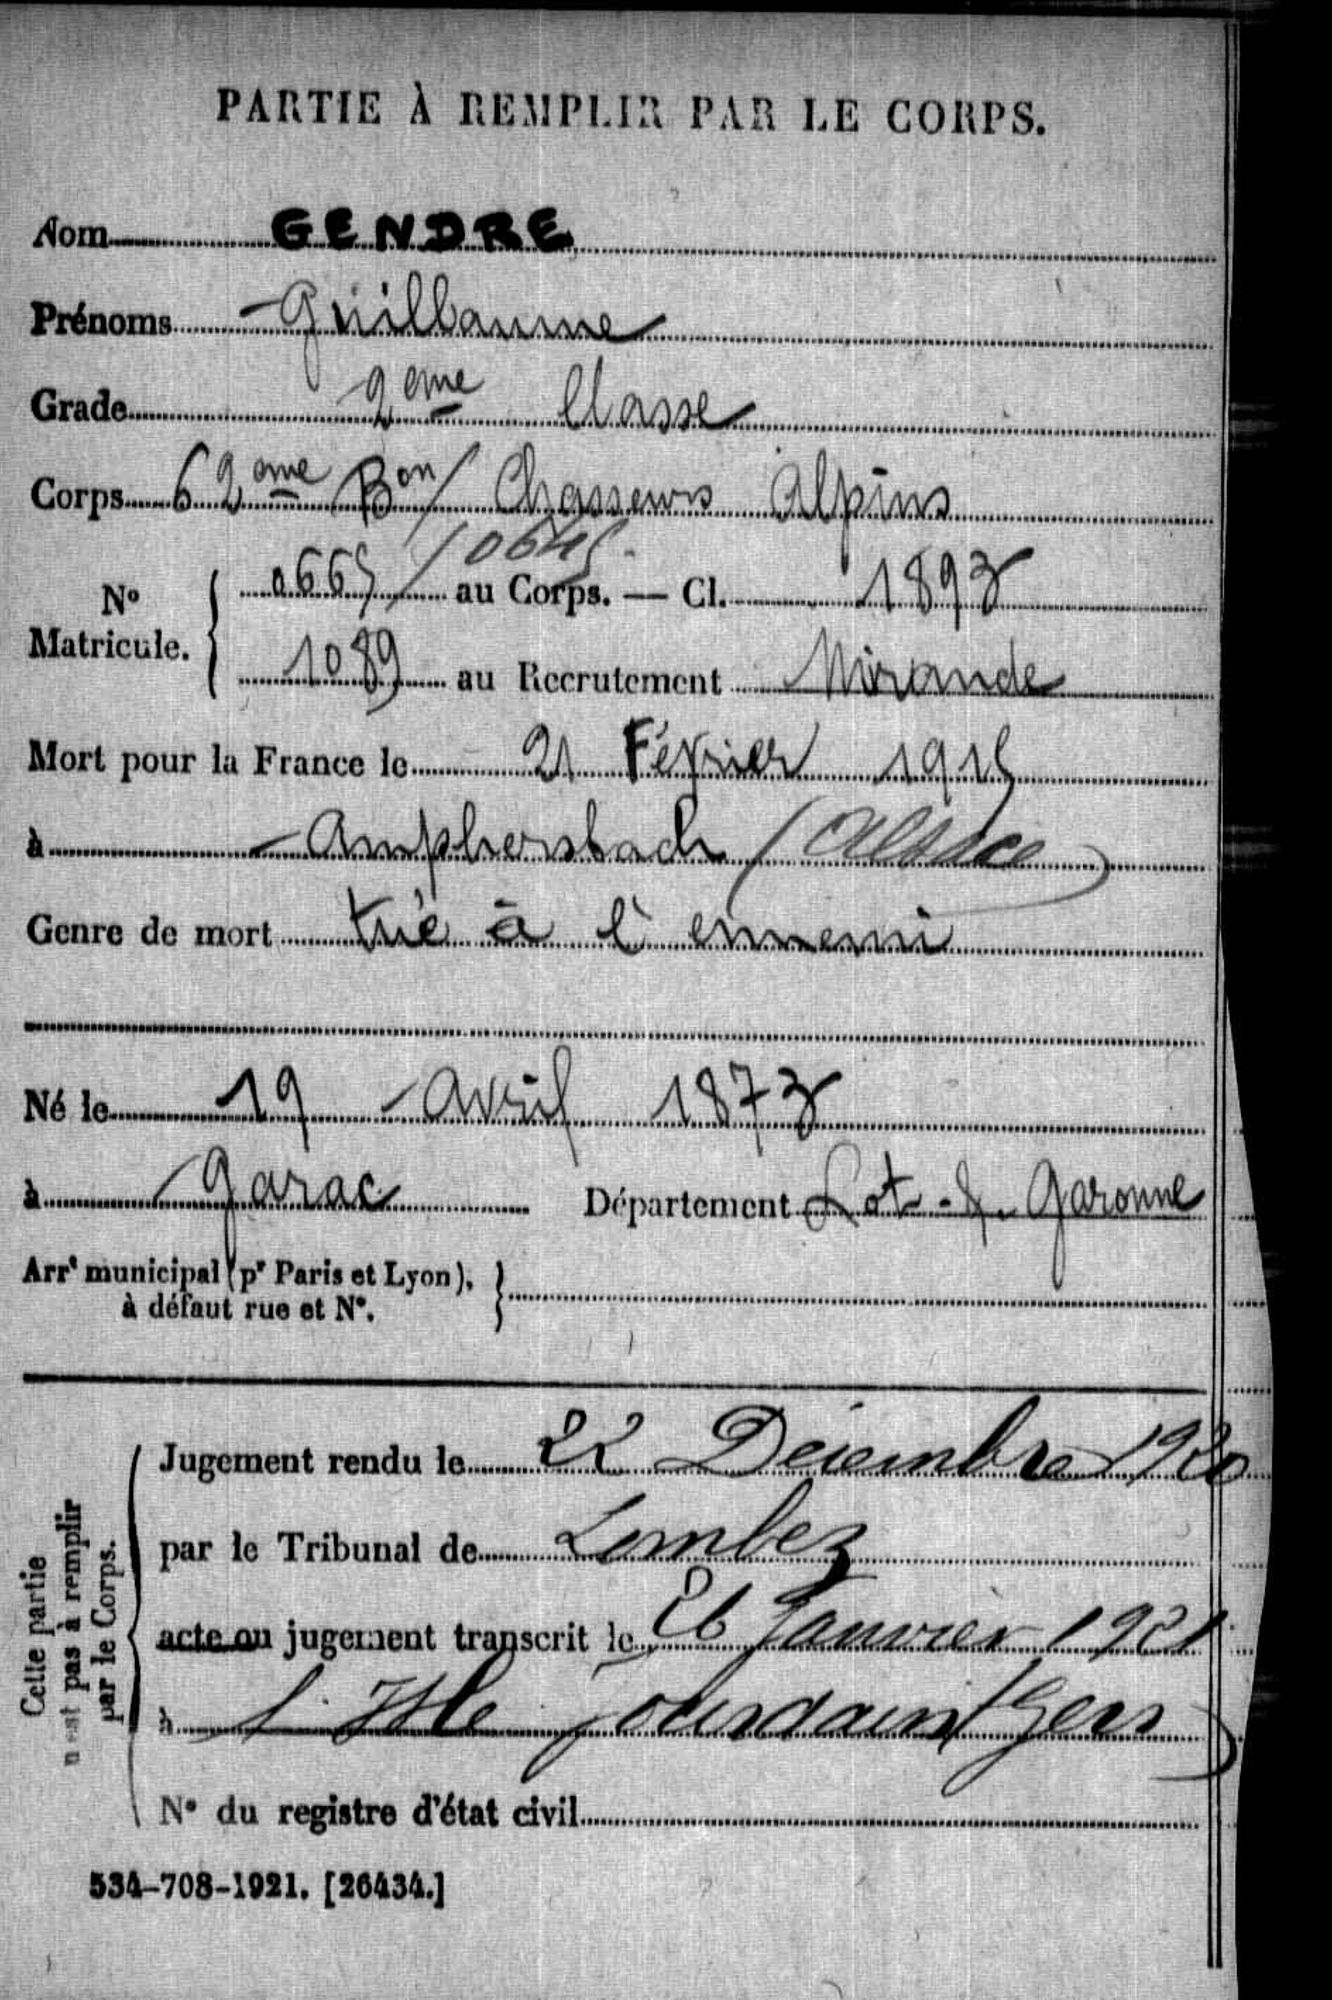 PARTIE À REMPLIR PAR LE CORPS.
Nom GENDRE
Prénoms Guillaume
Grade 2eme Classe
Corps 62eme Bon Chasseurs Alpins
No Matricule. 0665 / 0645 au Corps. — Cl. 1893
1089 au Recrutement Mirande
Mort pour la France le 21 Février 1915
à Amphersbach (Alsace)
Genre de mort tué à l'ennemi
Né le 19 Avril 1873
à Garac Département Lot-&-Garonne
Arrt municipal (pr Paris et Lyon),
à défaut rue et No.
Cette partie
n'est pas à remplir
par le Corps.
Jugement rendu le 22 Décembre 1920
par le Tribunal de Lombez
acte ou jugement transcrit le 26 Janvier 1921
à l'Isle Jourdain (Gers)
No du registre d'état civil
534-708-1921. [26434.]